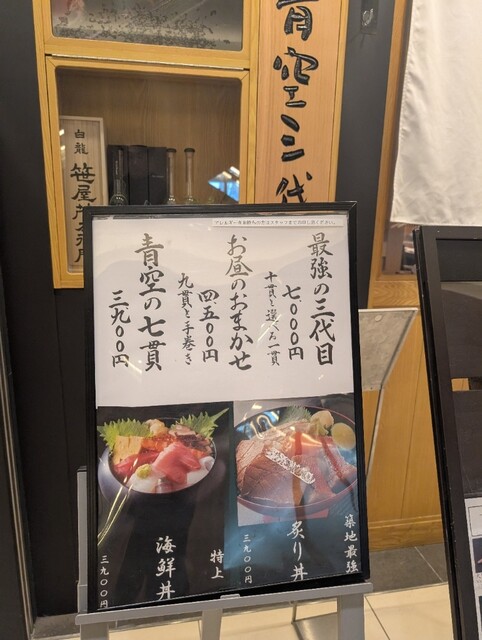 青空三代
白龍
笹屋茂左衛門
アレルギーをお持ちの方はスタッフまでお申し付けください。
最強の三代目
七、000円
十貫と選べる一貫
お昼のおまかせ
四、五00円
九貫と手巻き
青空の七貫
三、九00円
築地最強
炙り丼
三、九00円
特上
海鮮丼
三、九00円